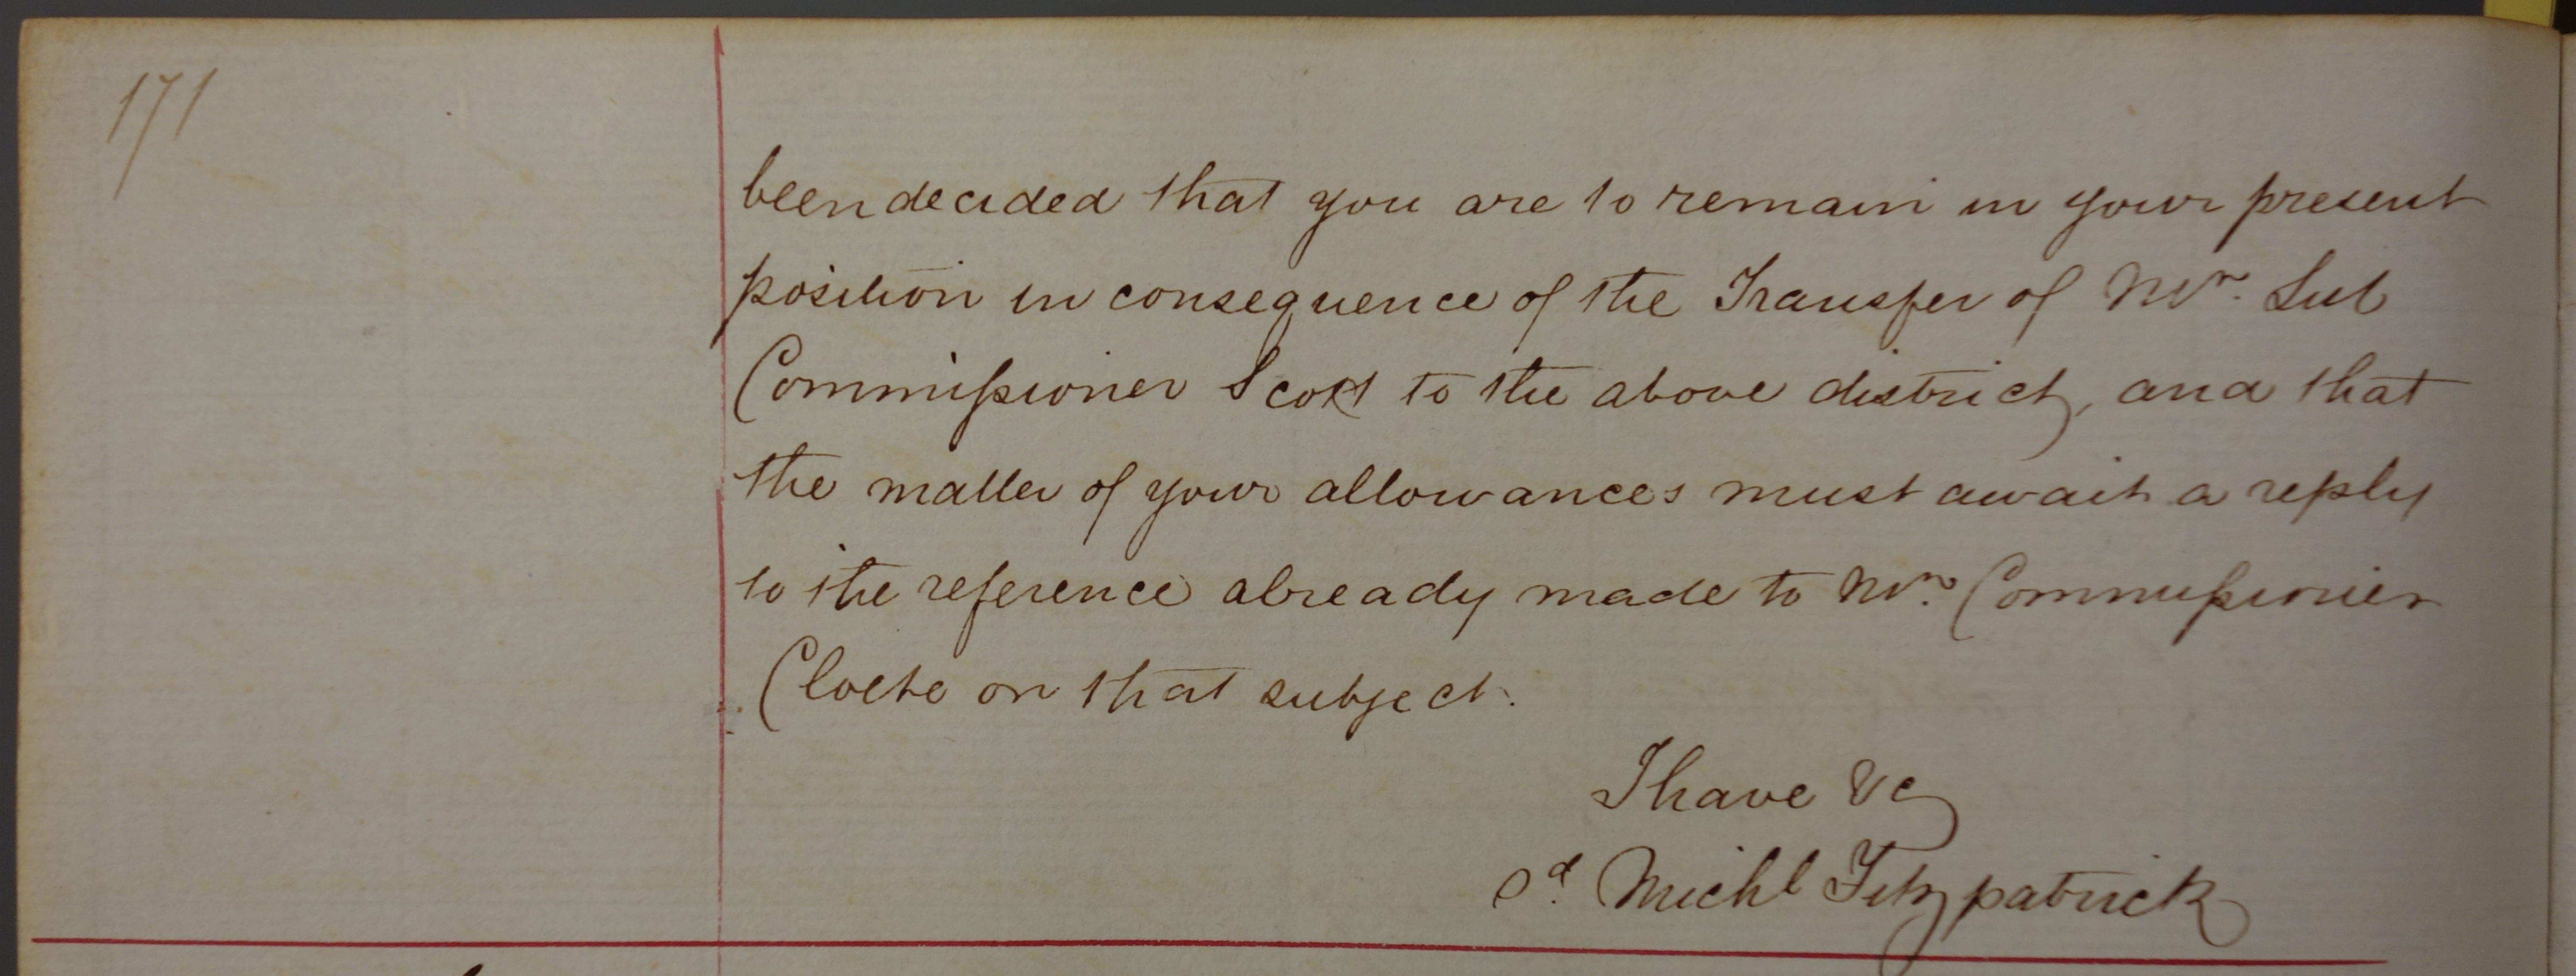 171
been decided that you are to remain in your present
position in consequence of the Transfer of Mr. Sub
Commissioner Scott to the above district, and that
the matter of your allowances must await a reply
to the reference already made to Mr. Commissioner
Cloete on that subject.
I have &c
Sd. Michl Fitzpatrick